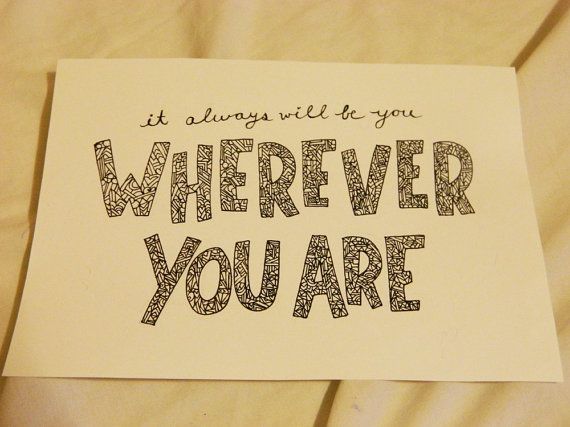 it always will be you
WHEREVER
YOU ARE